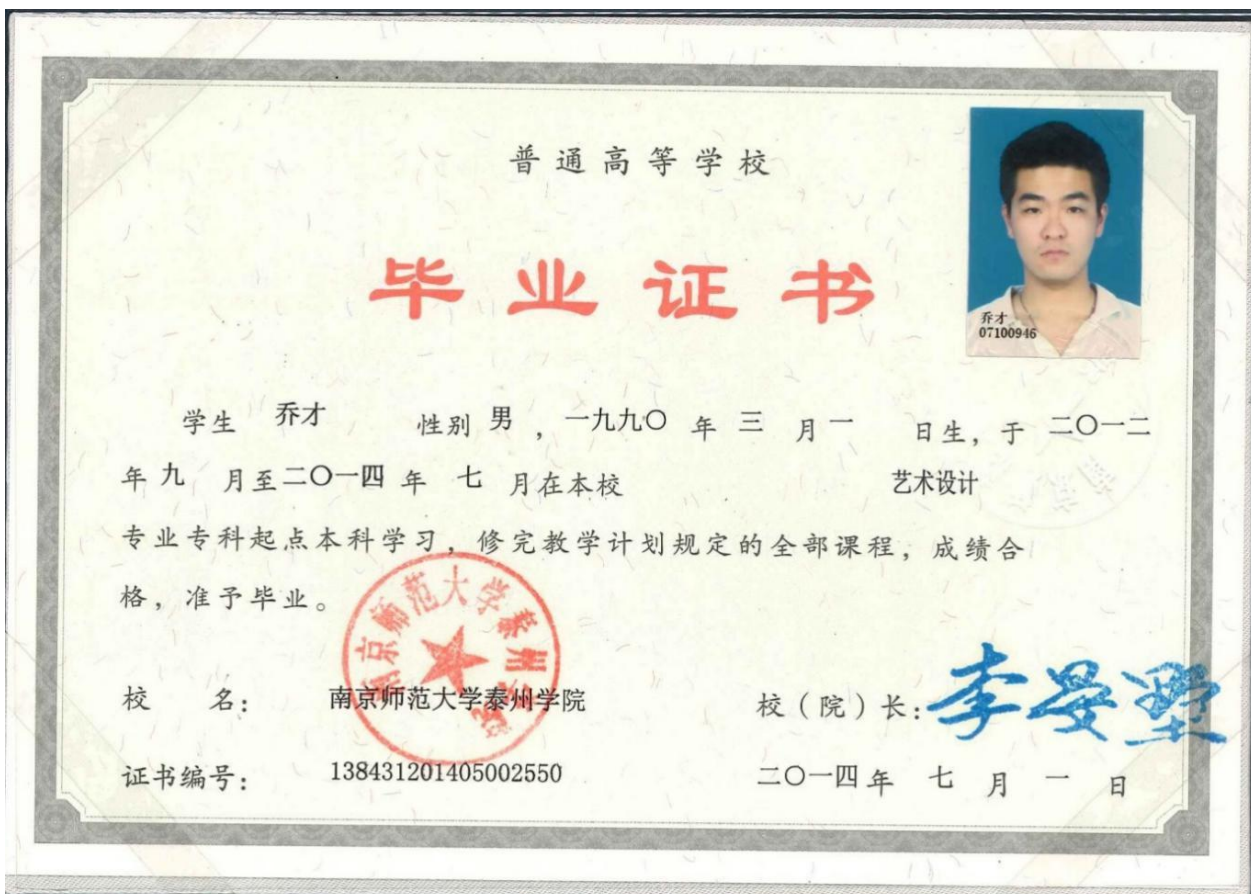 普通高等学校
毕业证书
乔才
07100946
学生 乔才 性别 男 ，一九九〇 年 三 月 一 日生，于 二〇一二
年 九 月至 二〇一四 年 七 月在本校 艺术设计
专业专科起点本科学习，修完教学计划规定的全部课程，成绩合
格，准予毕业。
南京师范大学泰州学院
校 名： 南京师范大学泰州学院
校（院）长：
证书编号： 138431201405002550
二〇一四 年 七 月 一 日